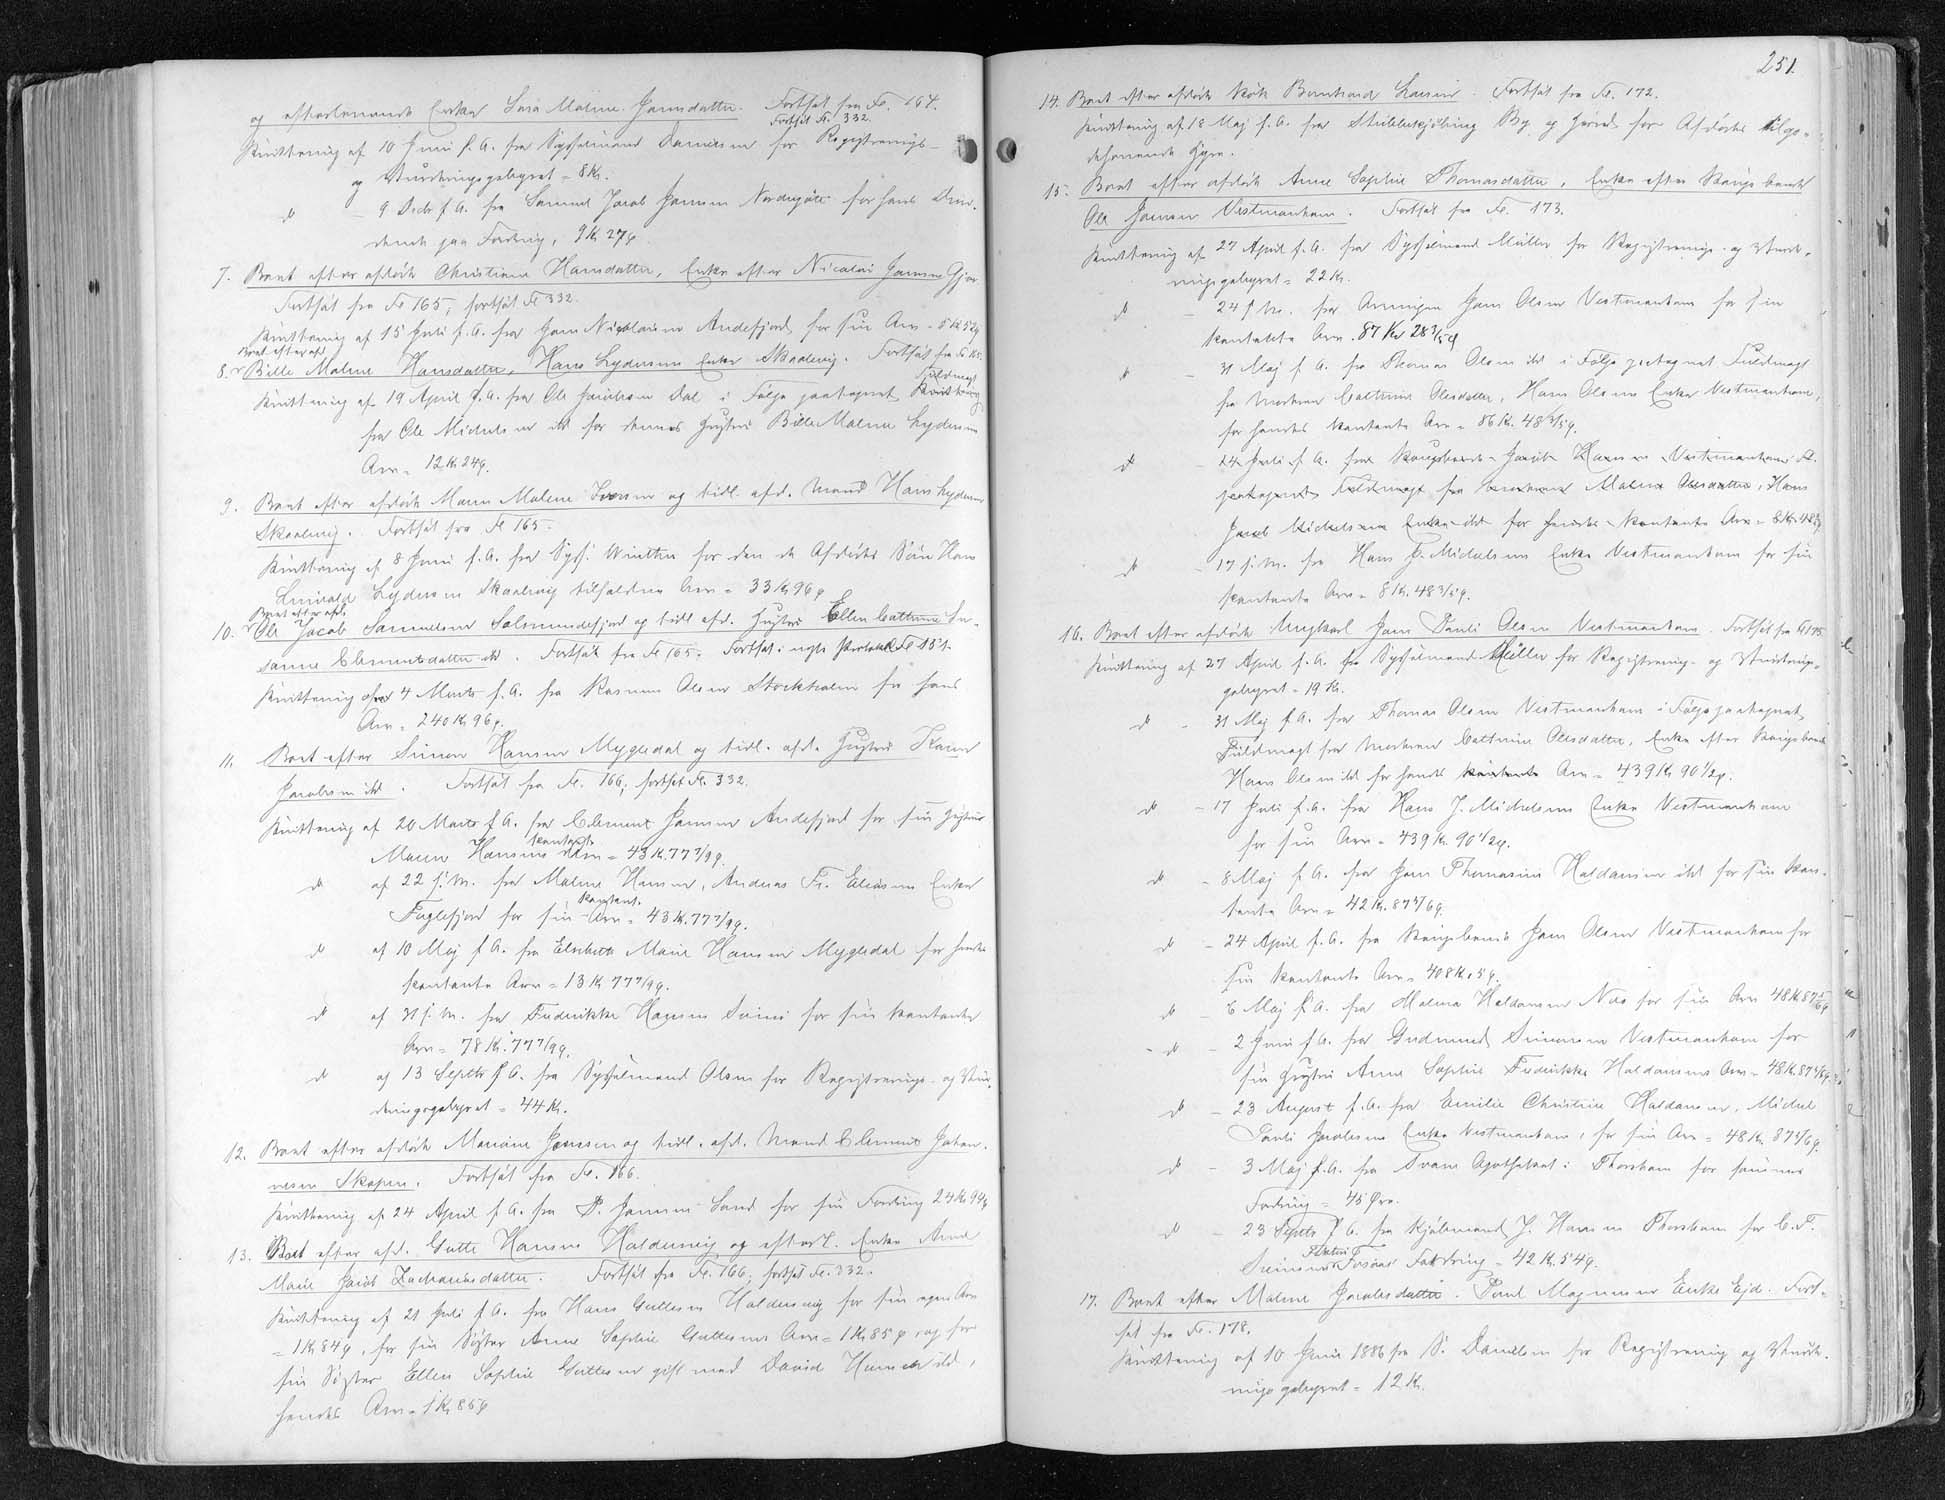 og efterlevende Enke Sara Maline Jensdatter. Fortsat fra Fo. 164.
Fortsat Fo. 332.
Kvittering af 10 Juni f. A. fra Sysselmand Danielsen for Registrerings-
og Vurderingsgebyret = 8 Kr.
do - 9 Decbr f. A. fra Samuel Jacob Jensen Nordregjøte for hans Divi-
dende paa Fordring, 9 Kr 27 ø
7. Boet efter afdøde Christiane Hansdatter, Enke efter Nicolai Jensen Gjov
Fortsat fra Fo 165, fortsat Fo 332.
Kvittering af 15 Juli f. A. fra Jens Nicolaisen Andefjord for sin Arv = 5 Kr 52 ø
Boet efter afd.
8. Bille Maline Hansdatter, Hans Lydersens Enke Skaalevig. Fortsat fra Fo 165.
Kvittering af 19 April f. A. fra Ole Jacobsen Dal i Følge paategnet Fuldmagt
fra Ole Michelsen ibd for dennes Hustru Bille Maline Lydersens
Arv = 12 Kr 24 ø.
9. Boet efter afdøde Maren Malene Iversen og tidl. afd. Mand Hans Lydersen
Skaalevig. Fortsat fra Fo 165.
Kvittering af 8 Juni f. A. fra Syss. Winther for den de Afdødes Søn Hans
Lydersen Skaalevig tilfaldne Arv = 33 Kr 96 ø
Boet efter afd.
10. Ole Jacob Samuelsen Salmundefjord og tidl. afd. Hustru Ellen Cathrine Su-
sanne Clementsdatter ibd. Fortsat fra Fo 165. Fortsat i nyt Protokol Fo 151.
Kvittering af 4 Marts f. A. fra Rasmus Olsen Stockholm for hans
Arv = 240 Kr 96 ø.
11. Boet efter Simon Hansen Mygledal og tidl. afd. Hustru
Jacobsen ibd. Fortsat fra Fo. 166, fortsat Fo. 332.
Kvittering af 20 Marts f. A. fra Clement Jensen Andefjord for sin Hustru
Maren Hansens kontante Arv = 43 Kr. 77 7/9 ø.
do af 22 s. M. fra Maline Hansen, Andreas Fr. Eliasens Enke
Fuglefjord for sin kontant. Arv = 43 Kr. 77 7/9 ø.
do af 10 Maj f. A. fra Elsebeth Marie Hansen Mygledal for hendes
kontante Arv = 13 Kr 77 7/9 ø.
do af 31 s. M. fra Fredrikke Hansen for sin kontante
Arv = 78 Kr. 77 7/9 ø.
do af 13 Septbr f. A. fra Sysselmand Olsen for Registrerings- og Vur-
deringsgebyret = 44 Kr.
12. Boet efter afdøde Mariane Jensen og tidl. afd. Mand Clement Johan-
nesen Skopen. Fortsat fra Fo. 166.
Kvittering af 24 April f. A. fra P. Jensen Sand for sin Fordring 24 Kr 94 ø
13. Boet efter afd. Gutte Hansen Haldersvig og efterl. Enke Anne
Marie Jacob Zachariasdatter. Fortsat fra Fo. 166, fortsat Fo. 332.
Kvittering af 21 Juli f. A. fra Hans Guttesen Haldersvig for sin egen Arv
= 1 Kr 84 ø, for sin Søster Anne Sophie Guttesens Arv = 1 Kr 85 ø og for
sin Søster Ellen Sophie Guttesen gift med David Hansen ibd,
hendes Arv = 1 Kr 85 ø
251.
14. Boet efter afdøde Kok Bernhard Larsen. Fortsat fra Fo. 172.
Kvittering af 18 Maj f. A. fra Stubbekjøbing By og Herred for Afdødes tilgo-
dehavende Hyre.
15. Boet efter afdøde Anne Sophie Thomasdatter, Enke efter Kongsbonde
Ole Jensen Vestmanhavn. Fortsat fra Fo. 173.
Kvittering af 27 April f. A. fra Sysselmand Müller for Registrerings- og Vurde-
ringsgebyret = 22 Kr.
do - 24 s. M. fra Arvingen Jens Olsen Vestmanhavn for sin
kontante Arv. 87 Kr 28 3/5 ø
do - 31 Maj f. A. fra Thomas Olsen ibd i Følge paategnet Fuldmagt
fra Moderen Cathrine Olesdatter, Hans Olsens Enke Vestmanhavn,
for hendes kontante Arv = 86 Kr. 48 3/5 ø.
do - 24 Juli f. A. fra Kongsbonde Jacob Hansen Vestmanhavn i F.
paategnet Fuldmagt fra Malene Olesdatter, Hans
Jacob Michelsens Enke ibd for hendes kontante Arv = 8 Kr. 48 3/5 ø
do - 17 s. M. fra Hans J. Michelsens Enke Vestmanhavn for sin
kontante Arv = 8 Kr. 48 3/5 ø.
16. Boet efter afdøde Ungkarl Jens Pauli Olsen Vestmanhavn. Fortsat fra Fo 175.
Kvittering af 27 April f. A. fra Sysselmand Müller for Registrerings- og Vurderings-
gebyret = 19 Kr.
do - 31 Maj f. A. fra Thomas Olsen Vestmanhavn i Følge paategnet
Fuldmagt fra Moderen Cathrine Olesdatter, Enke efter Kongsbonde
Hans Olsen ibd for hendes kontante Arv = 439 Kr 90 1/2 ø.
do - 17 Juli f. A. fra Hans J. Michelsens Enke Vestmanhavn
for sin Arv = 439 Kr. 90 1/2 ø.
do - 8 Maj f. A. fra Jens Thomasius Haldansen ibd for sin kon-
tante Arv = 42 Kr. 87 5/6 ø.
do - 24 April f. A. fra Kongsbonde Jens Olsen Vestmanhavn for
sin kontante Arv = 408 Kr. 5 ø.
do - 6 Maj f. A. fra Malene Haldansen Næs for sin Arv 48 Kr 87 5/6 ø
do - 2 Juni f. A. fra Gudmund Simonsen Vestmanhavn for
sin Hustru Anne Sophie Fredrikke Haldansens Arv = 48 Kr. 87 5/6 ø.
do - 23 August f. A. fra Emilie Christine Haldansen, Michel
Pauli Jacobsens Enke Vestmanhavn, for sin Arv = 48 Kr. 87 5/6 ø.
do - 3 Maj f. A. fra Svane Apotheket i Thorshavn for sammes
Fordring = 45 Øre.
do - 23 Septbr f. A. fra Kjøbmand J. Hansen Thorshavn for C. F.
Siemsens Fordring = 42 Kr. 54 ø.
17. Boet efter Maline Jacobsdatter. Poul Magnussens Enke Ejde. Fort-
sat fra Fo. 178.
Kvittering af 10 Juni 1886 fra S. Danielsen for Registrering og Vurde-
rings gebyret = 12 Kr.